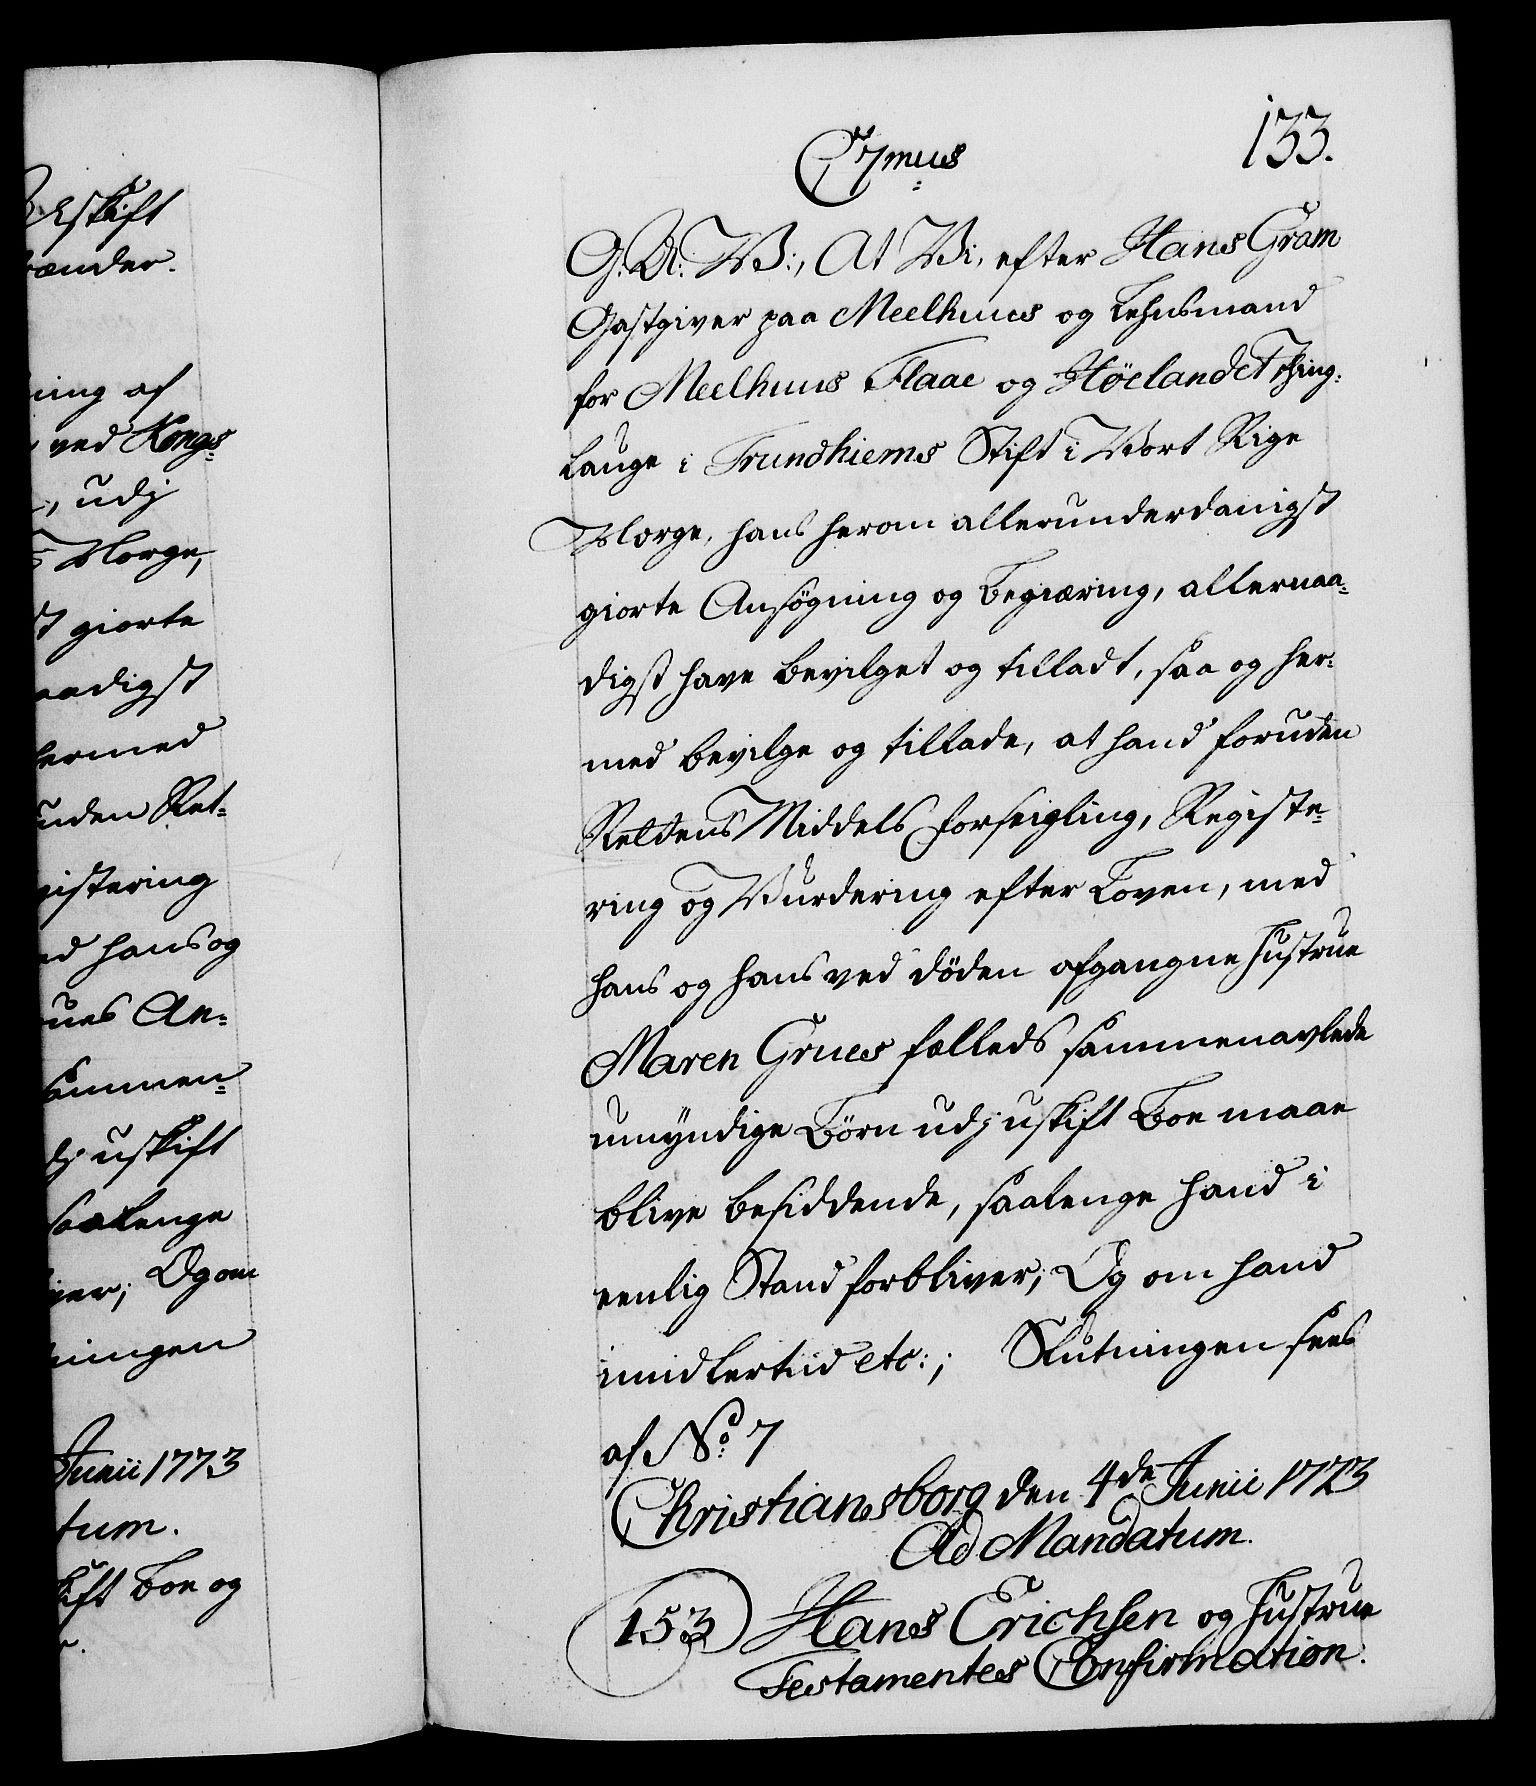 133.
C 7mus
G: A: V:, At Vi, efter Hans Gram
Gastgiver paa Meelhuus og Lehnsmand
for Meelhuus Flaae og Höelandet Thing-
lauge i Trundhiems Stift i Vort Rige
Norge, hans herom allerunderdanigst
giorte Ansøgning og Begiæring, allernaa-
digst have bevilget og tilladt, saa og her-
med bevilge og tillade, at hand foruden
Rettens Middels Forseigling, Registe-
ring og Vurdering efter Loven, med
hans og hans ved döden afgangne Hustrue
Maren Grues fælleds sammenavlede
umyndige Börn udj uskift Boe maae
blive besiddende, saalenge hand i
eenlig Stand forbliver; Og om hand
imidlertiid etc:; Slutningen sees
af No: 7
Christiansborg den 4de Junii 1773
Ad Mandatum.
153 Hans Erichsen og Hustrue
Testamentes Confirmation.
skift
ænder.
ning af
ved Kongs-
, udj
Norge,
giorte
aadigst
hermed
uden Ret-
gistering
hans og
ues An-
sammen-
uskift
saalenge
ver; Og om
ningen
Junii 1773
tum.
kift Boe og